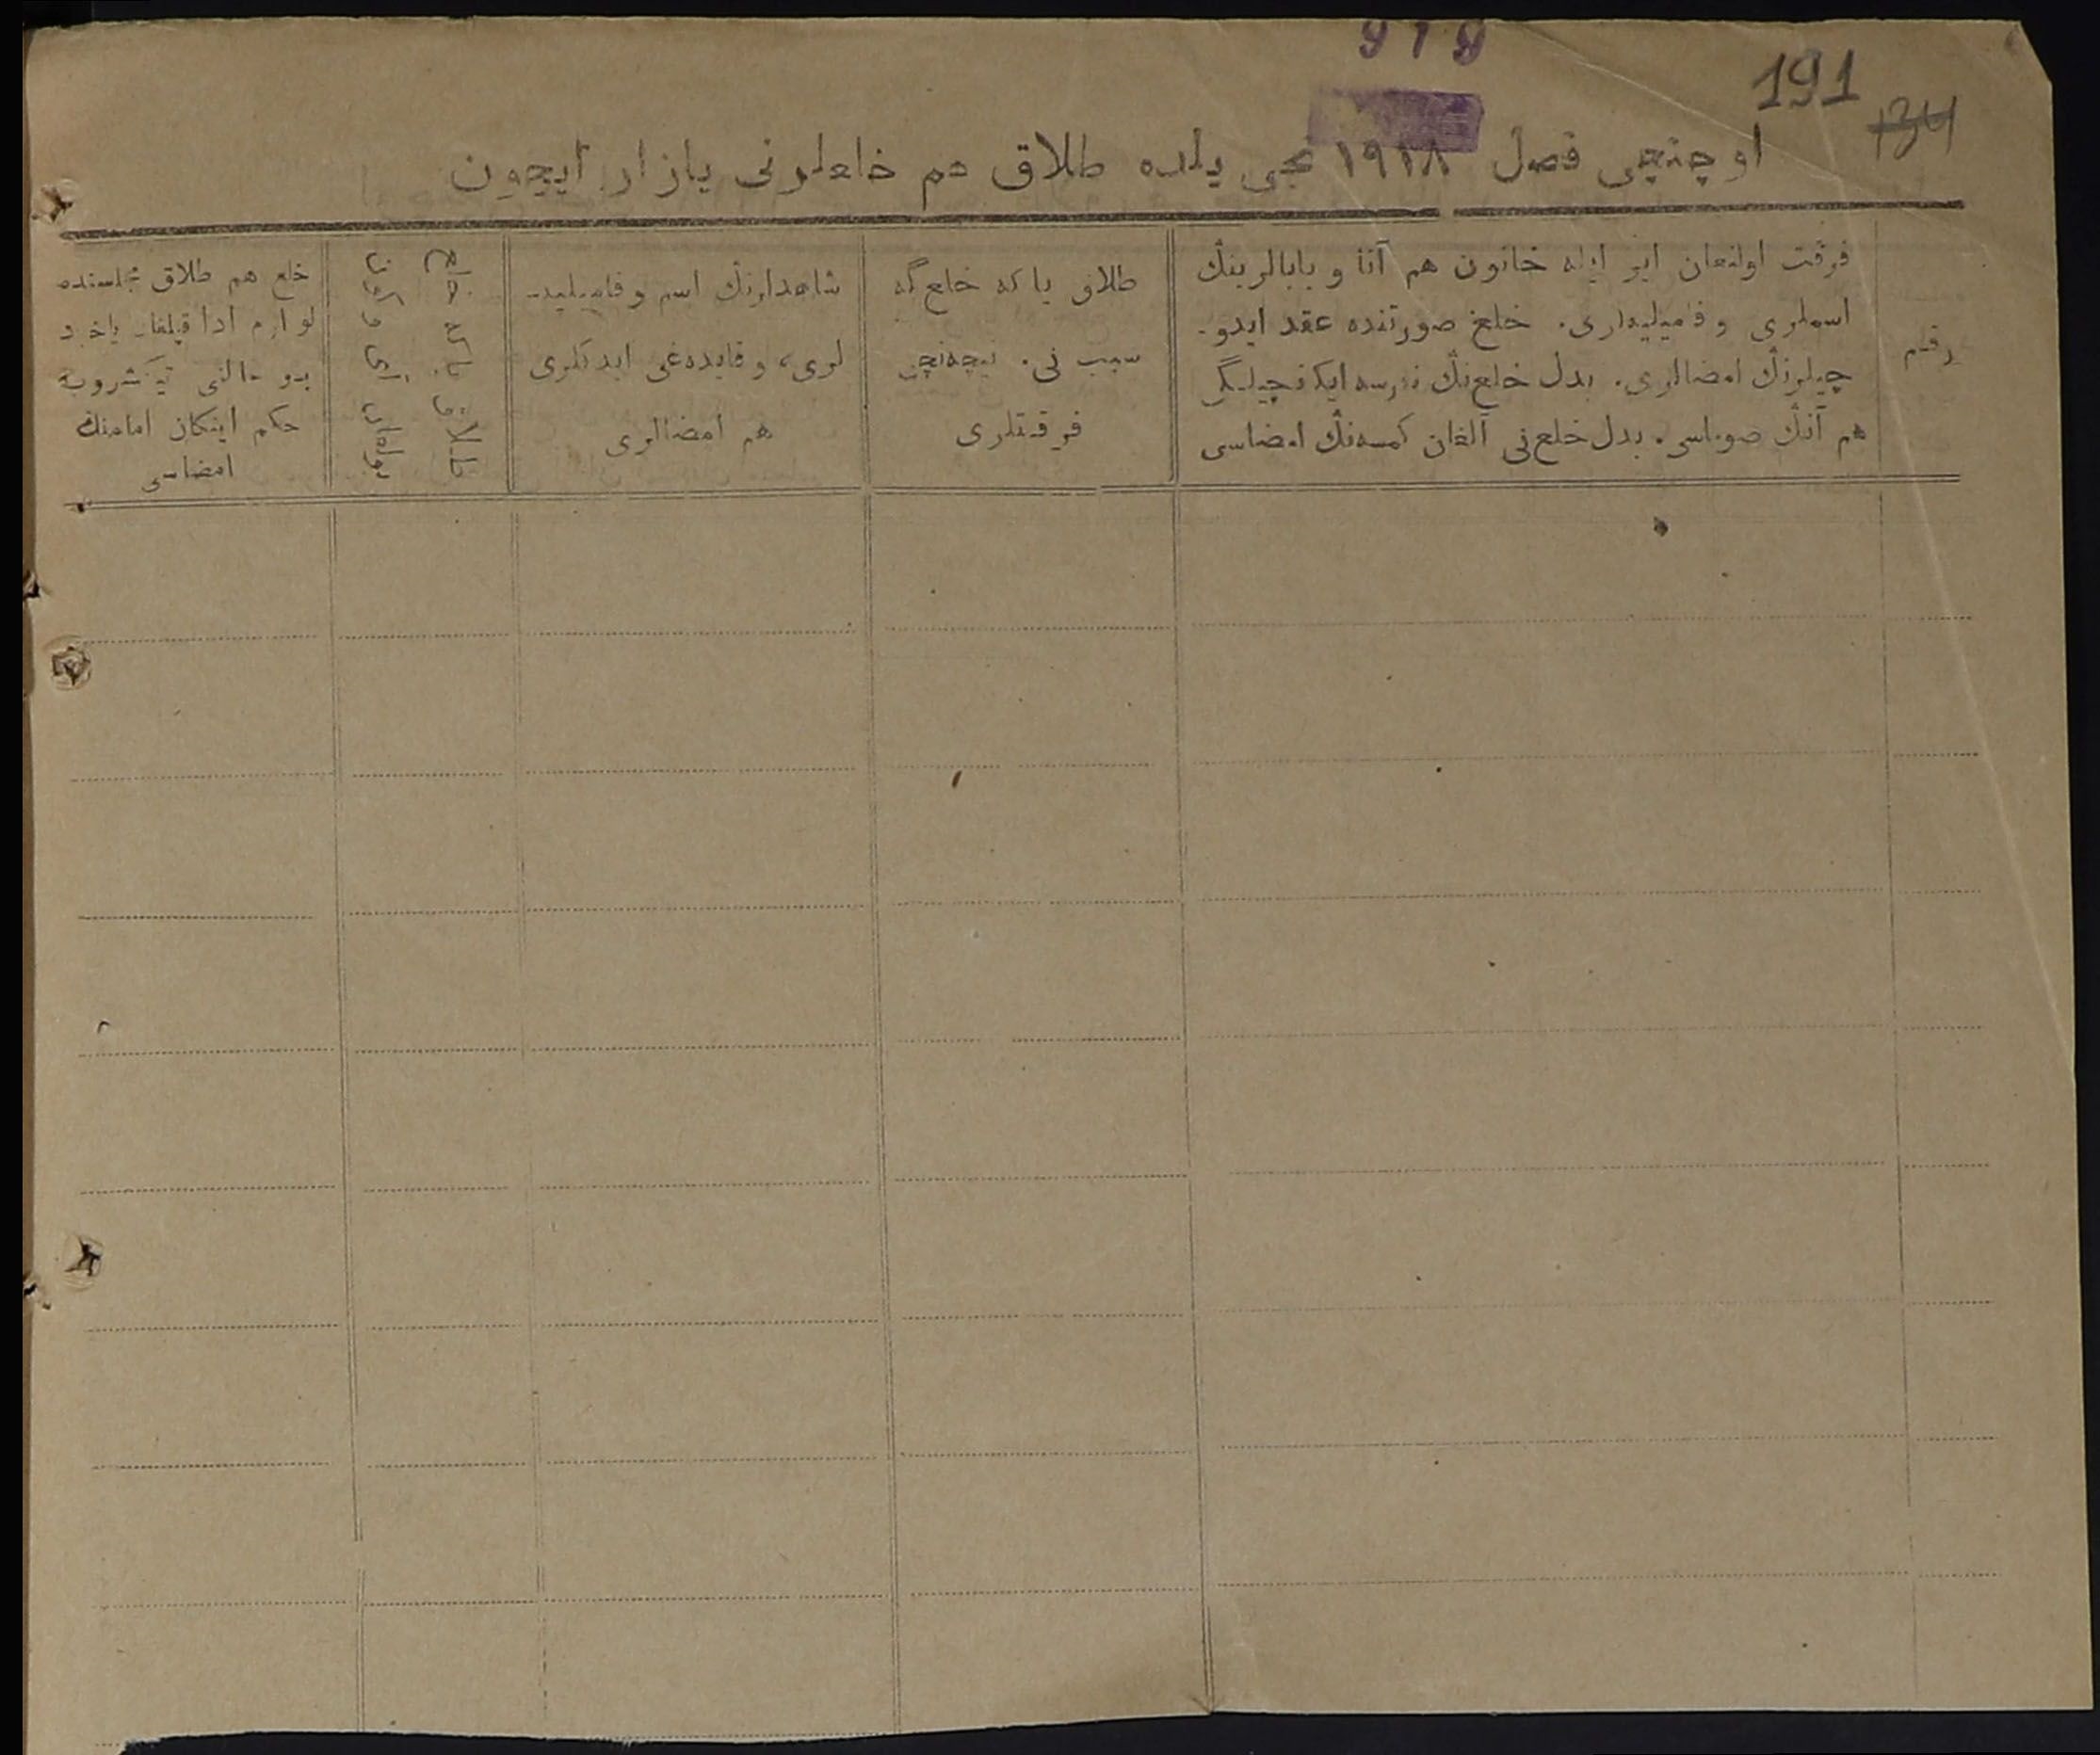 919
191
134
اوچنچی فصل ١٩١٨ نچی یلده طلاق هم خلعلرنی یازار ایچون
رقم
فرقت اولنغان ایر ایله خاتون هم آنا و بابالرینڭ
اسملری و فامیلیه‌لری. خلع صورتنده عقد ایدو-
چیلرنڭ امضالری. بدل خلع‌نڭ نرسه ایکانچیلیگی
هم آنڭ صوماسی. بدل خلع‌نی آلغان کمسه‌نڭ امضاسی
طلاق یا که خلع گه
سبب نی. نیچه‌نچی
فرقتلری
شاهدلرنڭ اسم و فامیلیه-
لری، و قایده‌غی ایدکلری
هم امضالری
خلع هم طلاق مجلسنده
لوازم ادا قیلغان یاخود
بو حالنی تیکشروب
حکم ایتکان امامنڭ
امضاسی